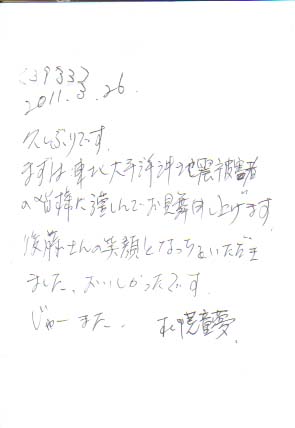 <3933>
2011.3.26.
久しぶりです。
まずは東北太平洋沖地震被害者
の皆様に謹んでお見舞申し上げます
後藤さんの笑顔となっちをいただき
ました、おいしかったです。
じゃーまた、 童夢